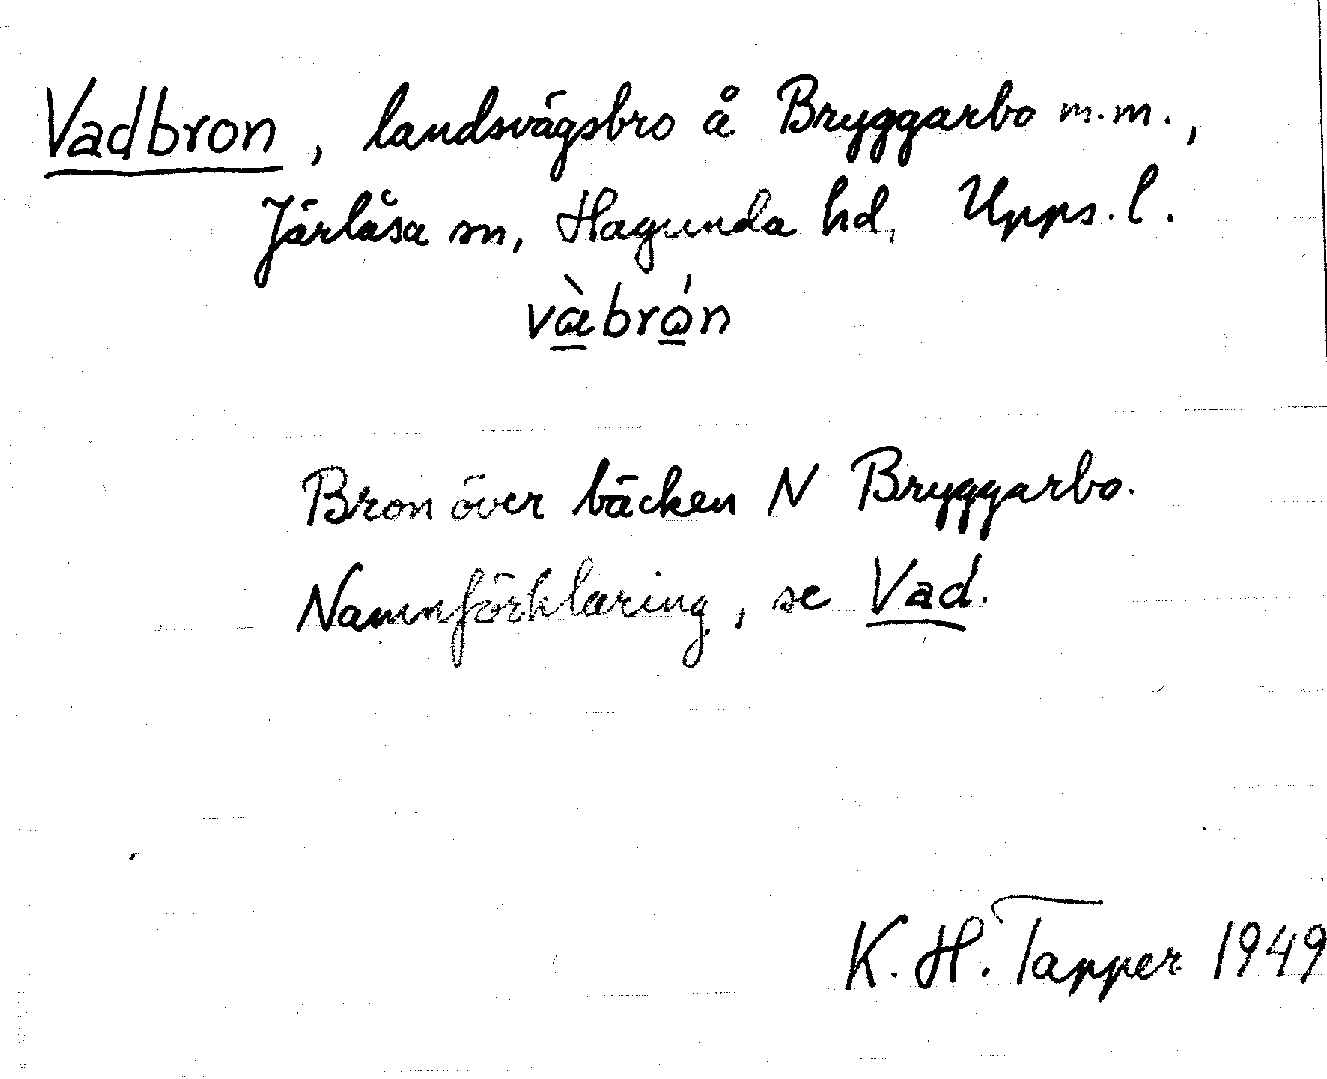 Vadbron, landsvägsbro å Bryggarbo m.m.,
Järlåsa sn, Hagunda hd, Upps. l.
và̱bró̱n
Bron över bäcken N Bryggarbo.
Namnförklaring, se Vad.
K. H. Tapper 1949